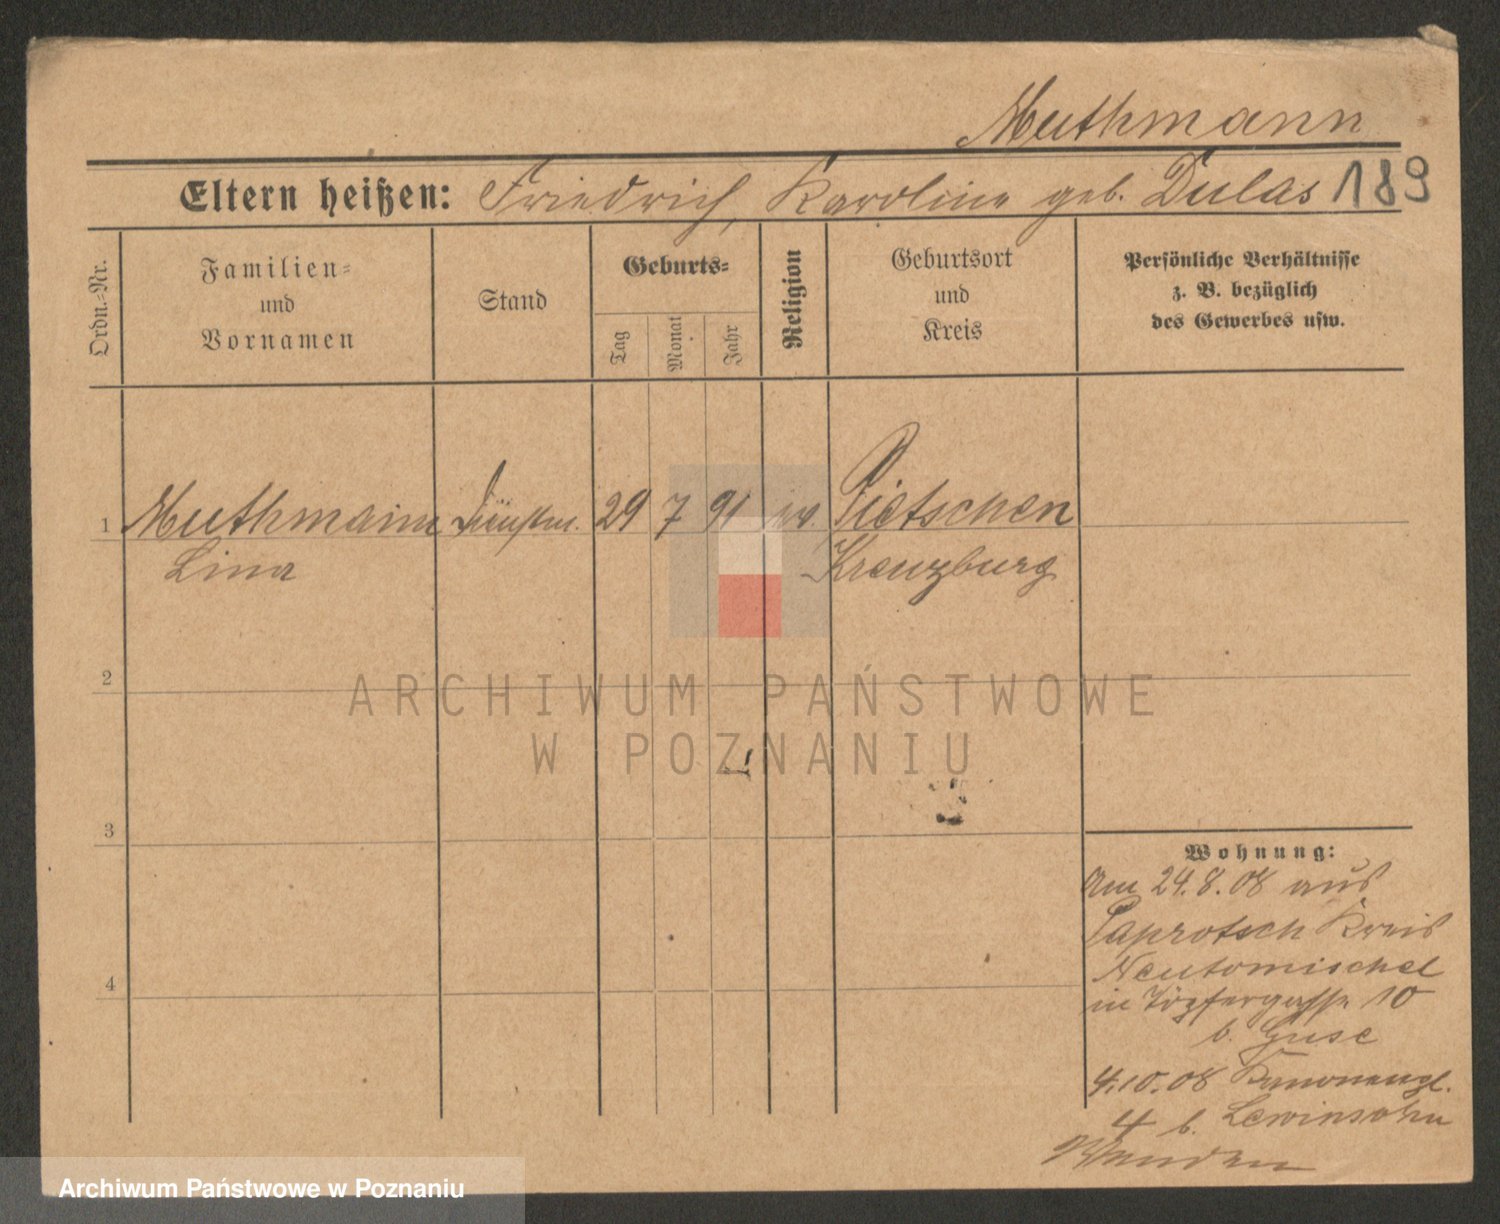 Muthmann
Eltern heißen: Friedrich, Karoline geb. Dulas 189
Ordn.-Nr.
Familien-
und
Vornamen
Stand
Geburts-
Tag
Monat
Jahr
Religion
Geburtsort
und
Kreis
Persönliche Verhältnisse
z. B. bezüglich
des Gewerbes usw.
1 Muthmann Dienstm. 29 7 91 ev. Pietschen
Lina Kreuzburg
2
ARCHIWUM PAŃSTWOWE
W POZNANIU
3
Wohnung:
Am 24.8.08 aus
Paprotsch Kreis
Neutomischel
in Töpfergasse 10
b. Guse
4.10.08 Kanonenpl.
4 b. Lewinsohn
Wenden
4
Archiwum Państwowe w Poznaniu